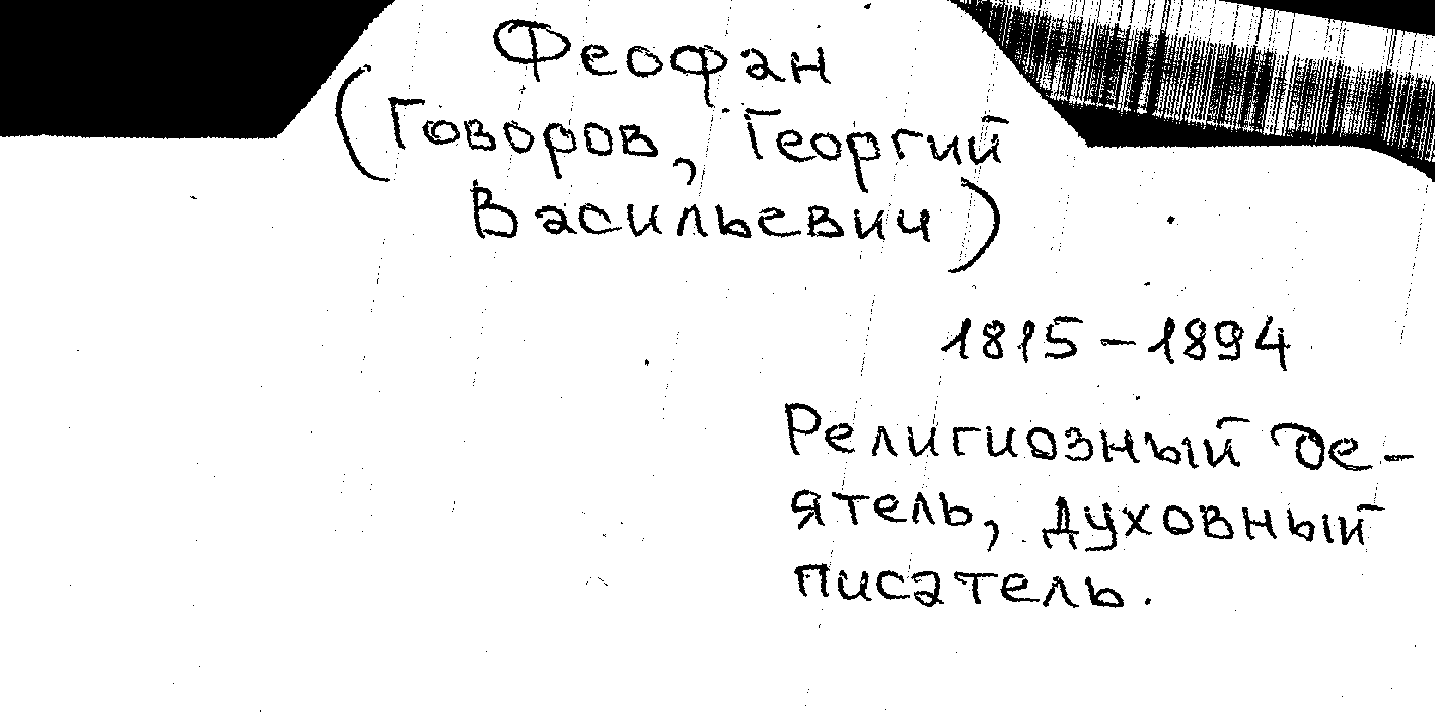 Феофан
(Говоров, Георгий
Васильевич)
1815–1894
Религиозный де-
ятель, духовный
писатель.